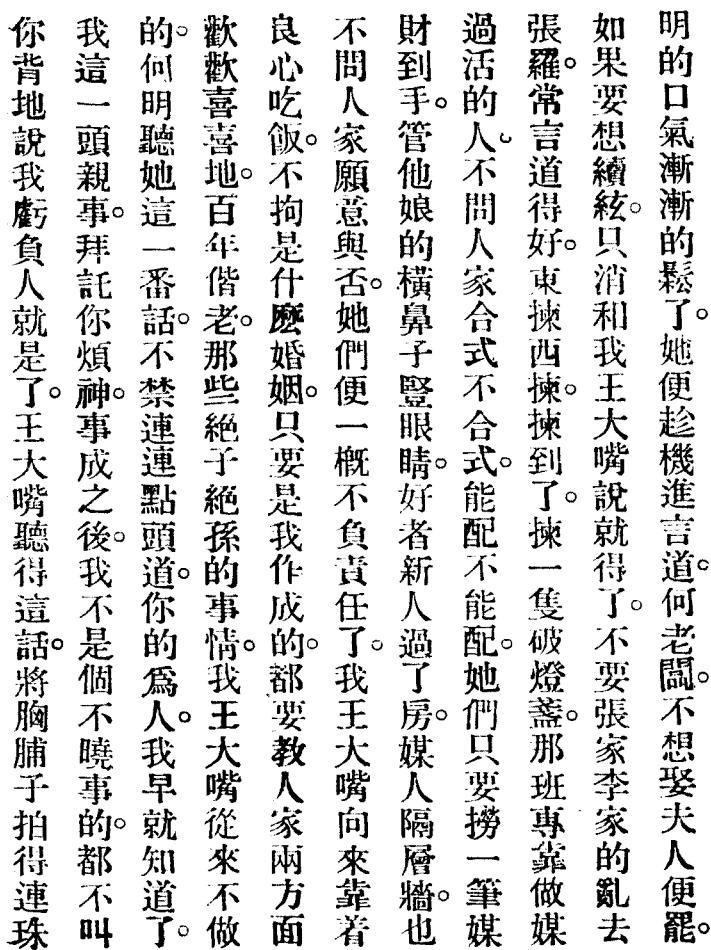 明的口氣漸漸的鬆了。她便趁機進言道。何老闆。不想娶夫人便罷。
如果要想續絃。只消和我王大嘴說就得了。不要張家李家的亂去
張羅。常言道得好。東揀西揀。揀到了。揀一隻破燈盞。那班專靠做媒
過活的人。不問人家合式不合式。能配不能配。她們只要撈一筆媒
財到手。管他娘的橫鼻子豎眼睛。好者新人過了房。媒人隔層牆。也
不問人家願意與否。她們便一概不負責任了。我王大嘴向來靠着
良心吃飯。不拘是什麽婚姻。只要是我作成的。都要教人家兩方面
歡歡喜喜地。百年偕老。那些絕子絕孫的事情。我王大嘴從來不做
的。何明聽她這一番話。不禁連連點頭道。你的爲人。我早就知道了。
我這一頭親事。拜託你煩神。事成之後。我不是個不曉事的。都不叫
你背地說我虧負人就是了。王大嘴聽得這話。將胸脯子拍得連珠